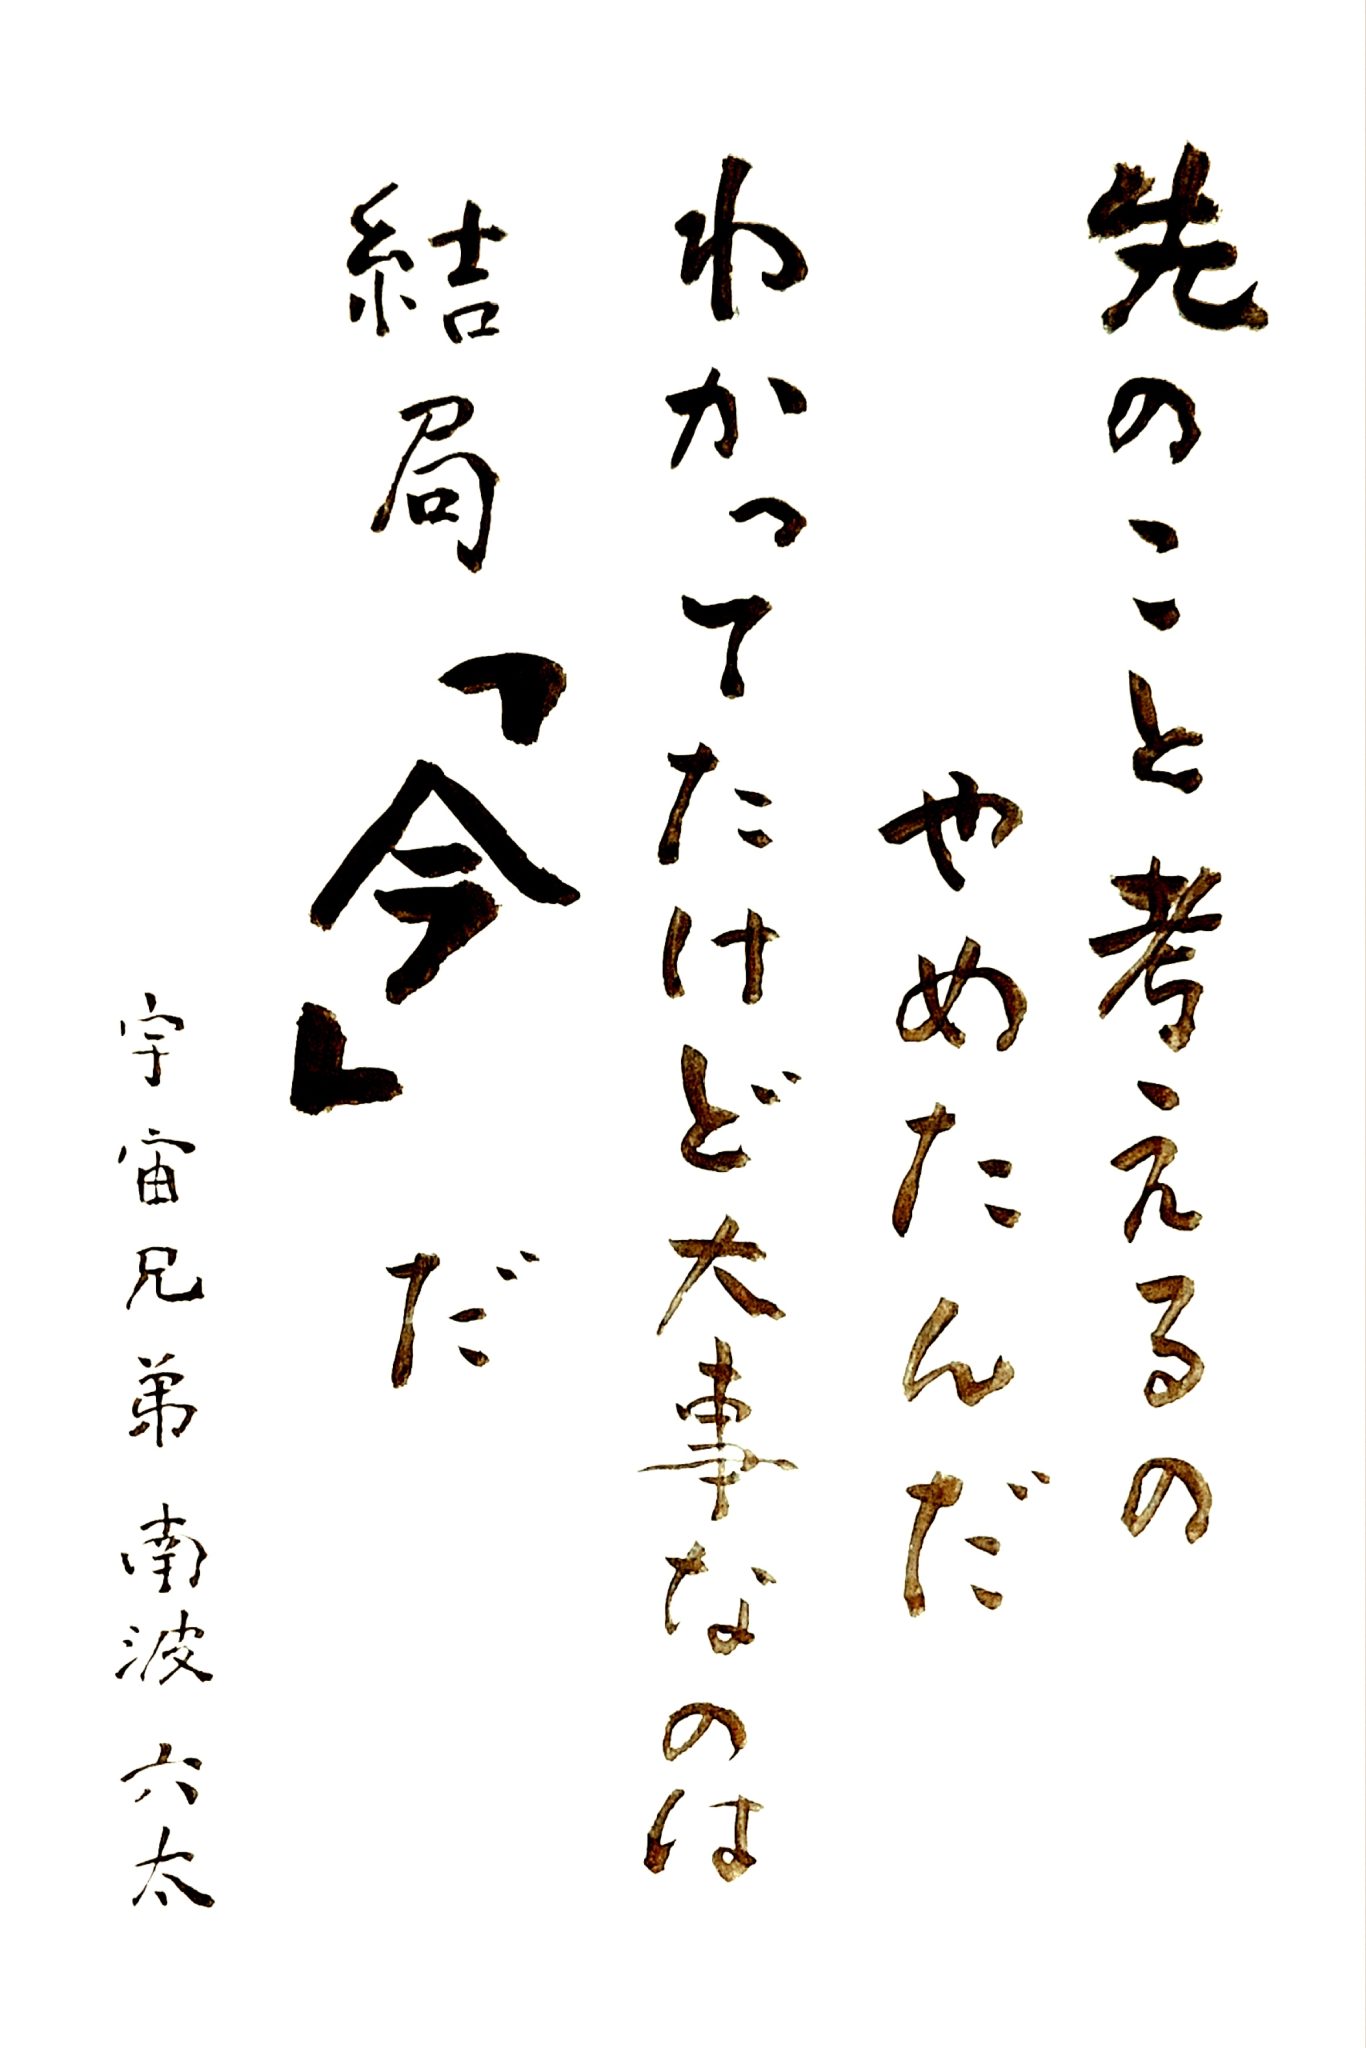 先のこと考えるの
やめたんだ
わかってたけど大事なのは
結局「今」だ
宇宙兄弟 南波 六太